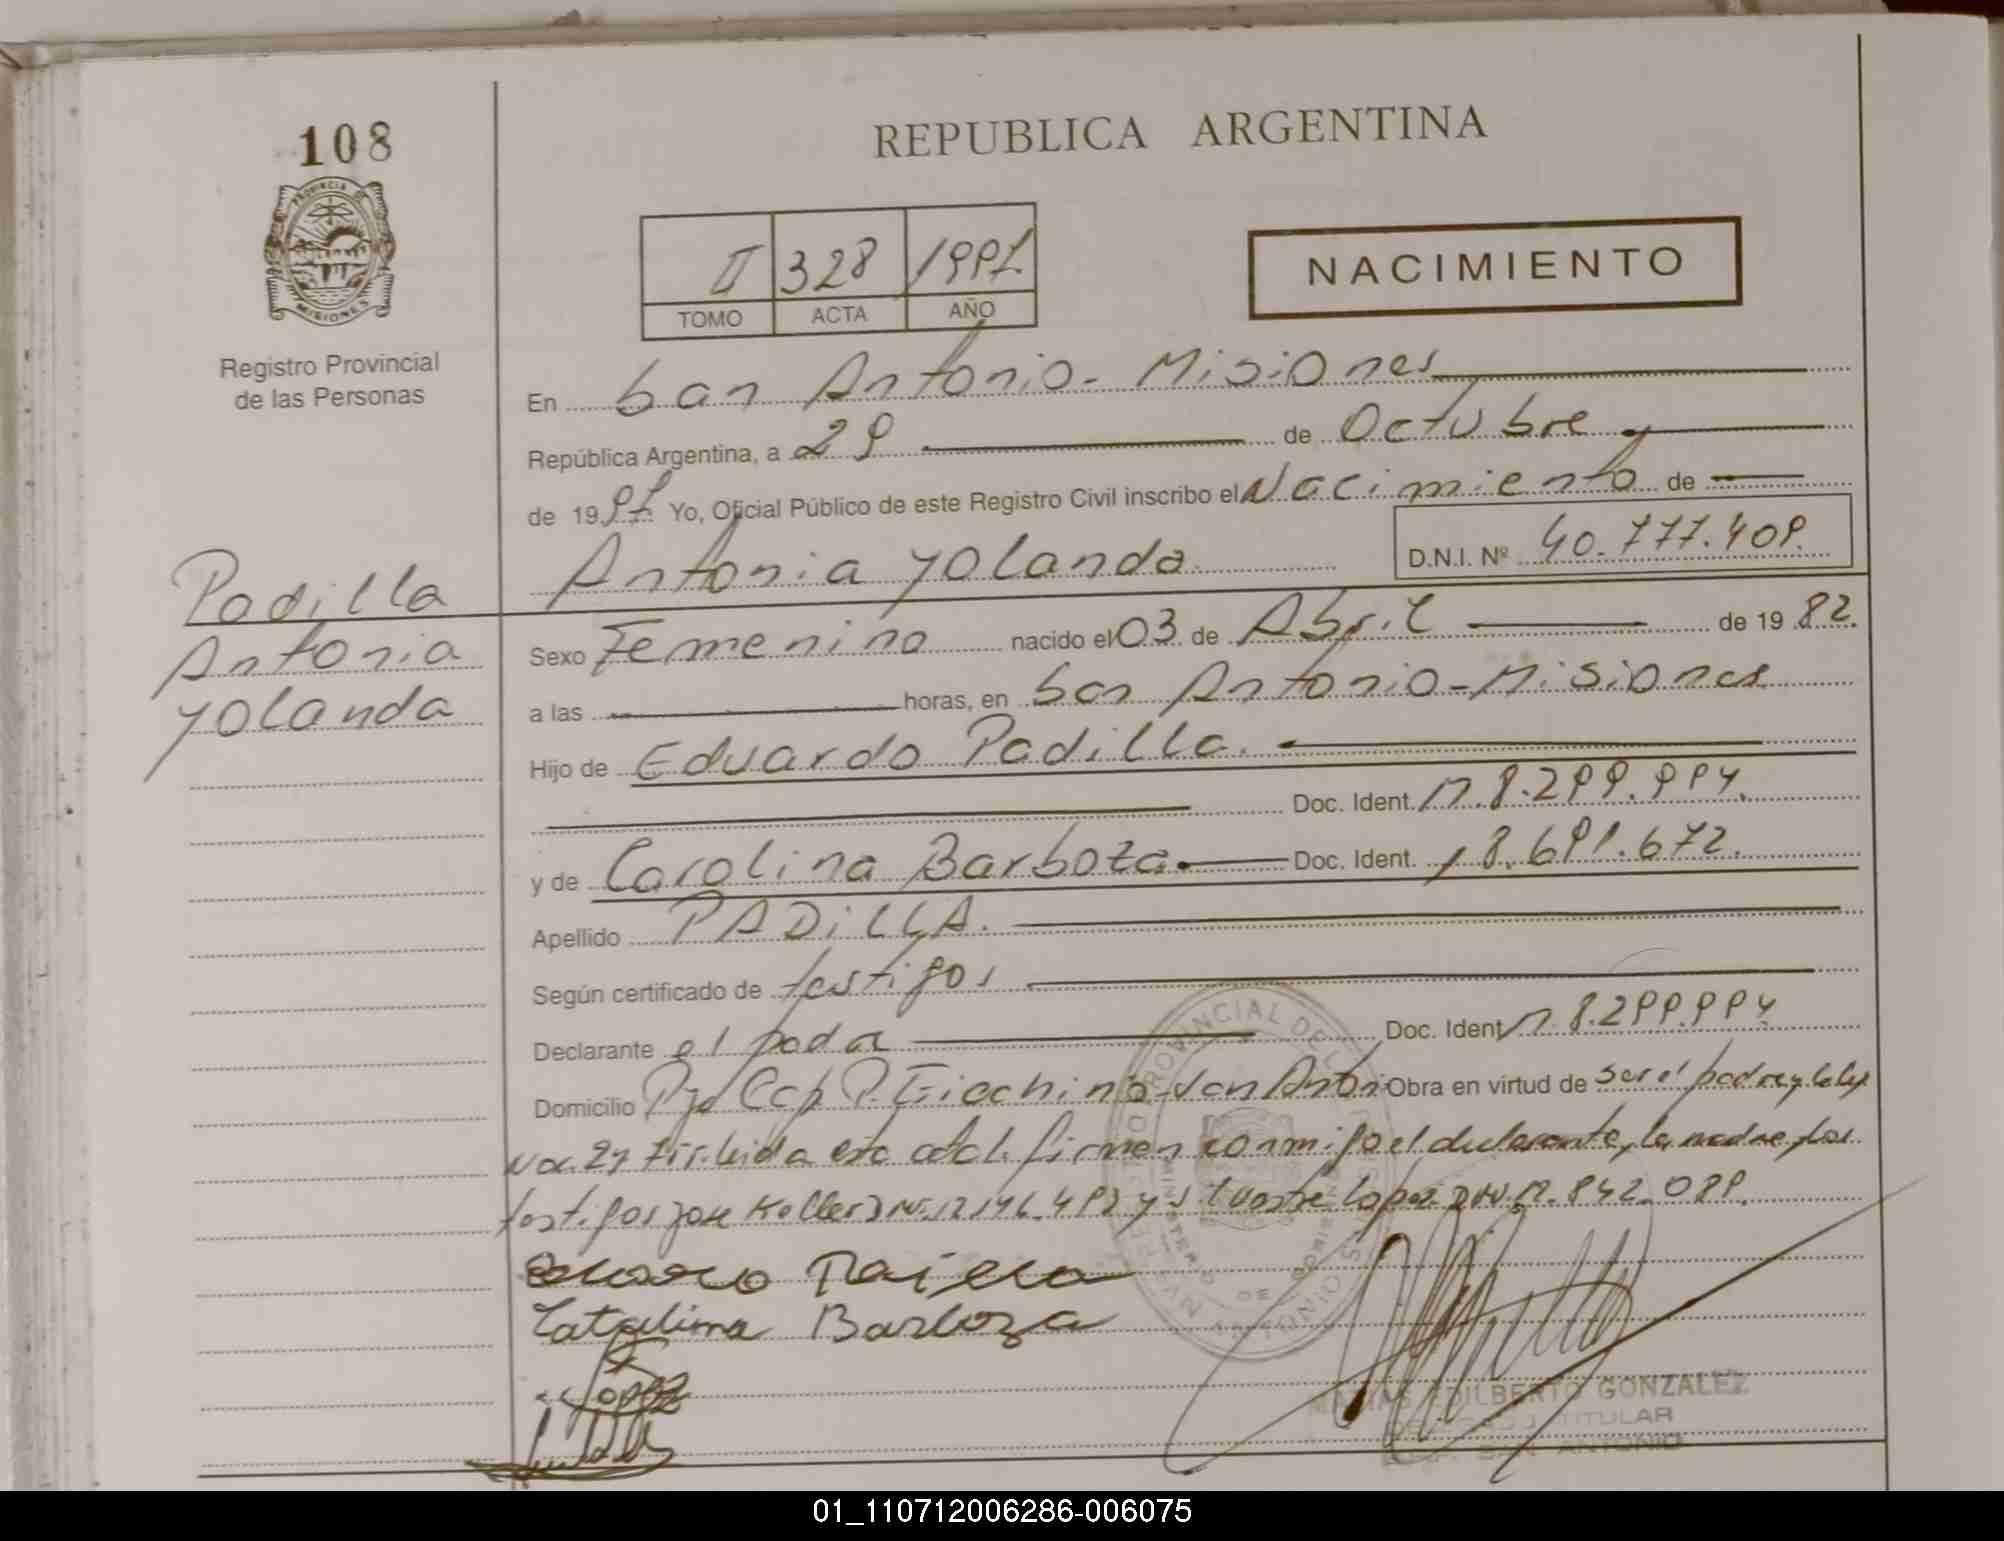 108
PROVINCIA DE
MISIONES
Registro Provincial
de las Personas
Padilla
Antonia
Yolanda
REPUBLICA ARGENTINA
II 328
TOMO ACTA AÑO
NACIMIENTO
En San Antonio - Misiones
República Argentina, a 29 de Octubre
de 19 Yo, Oficial Público de este Registro Civil inscribo el Nacimiento de
Antonia Yolanda. D.N.I. Nº 40.777.409.
Sexo Femenino nacido el 03 de Abril de 19 82.
a las horas, en San Antonio - Misiones
Hijo de Eduardo Padilla.
Doc. Ident. 8.299.994.
y de Carolina Barboza Doc. Ident. 8.691.672.
Apellido PADiLLA.
Según certificado de testigos
Declarante el padre Doc. Ident. 8.299.994
Domicilio San Antoni Obra en virtud de ser el padre y
firman conmigo el declarante, la madre, los
testigos Jose Koller y Lopez
Catalina Barboza
Lopez
EDILBERTO GONZALEZ
TITULAR
SAN ANTONIO
01_110712006286-006075